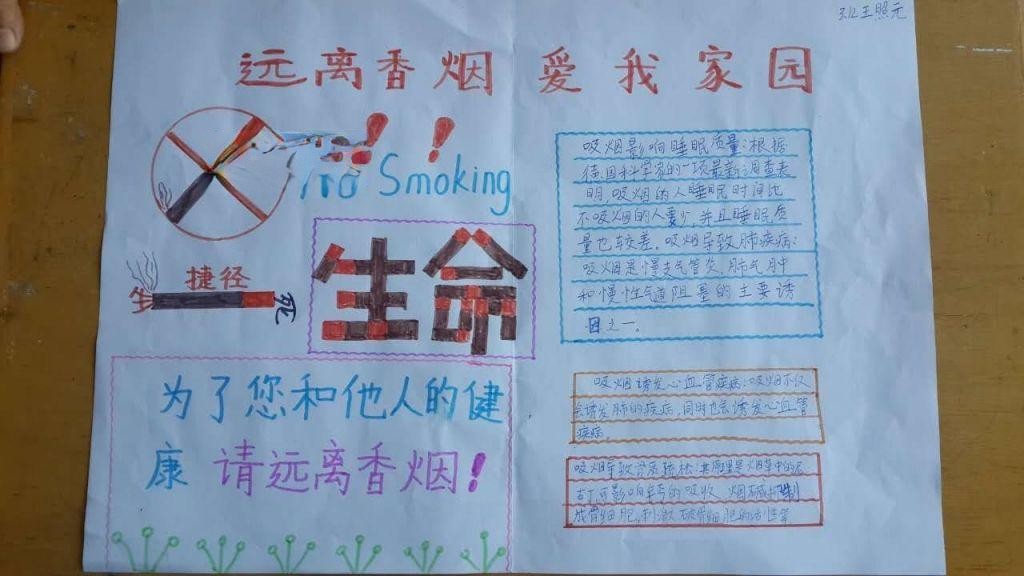 312王照元
远离香烟 爱我家园
No Smoking
捷径
生
死
生命
为了您和他人的健
康 请远离香烟!
吸烟影响睡眠质量:根据
德国科学家的一项最新调查表
明,吸烟的人睡眠时间比
不吸烟的人要少,并且睡眠质
量也较差。吸烟导致肺疾病:
吸烟是慢支气管炎、肺气肿
和慢性气道阻塞的主要诱
因之一。
吸烟诱发心血管疾病:吸烟不仅
会诱发肺的疾病,同时也会诱发心血管
疾病
吸烟导致骨质疏松:其原理是烟草中的尼
古丁可影响钙的吸收 烟碱抑制
成骨细胞,刺激破骨细胞的活性等